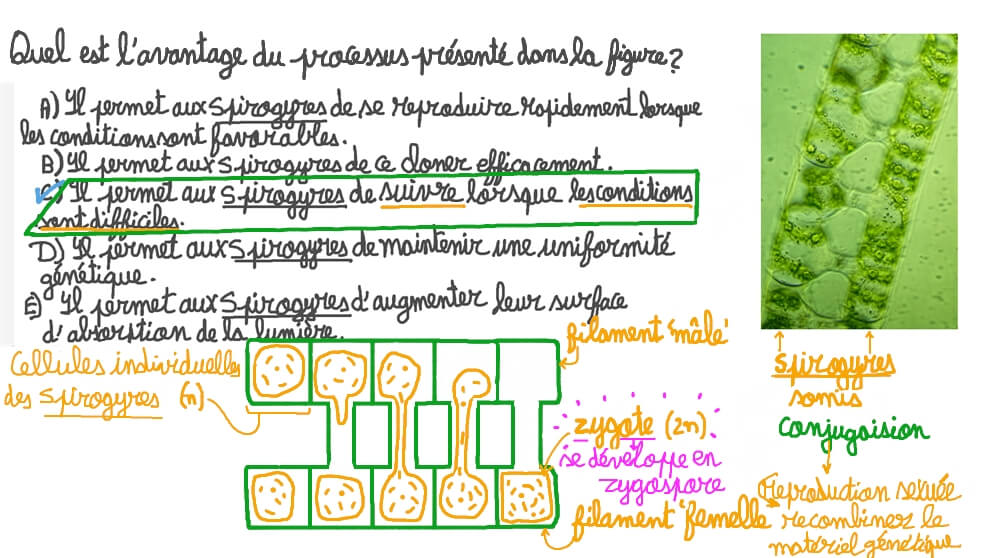 Quel est l'avantage du processus présenté dans la figure?
A) Il permet aux spirogyres de se reproduire rapidement lorsque
les conditions sont favorables.
B) Il permet aux spirogyres de ce cloner efficacement.
C) Il permet aux spirogyres de suivre lorsque les conditions
sont difficiles.
D) Il permet aux spirogyres de maintenir une uniformité
génétique.
E) Il permet aux spirogyres d'augmenter leur surface
d'absorption de la lumière.
filament 'mâle'
Cellules individuelles
des spirogyres (n)
spirogyres
somis
conjugaision
zygote (2n)
se développe en
zygospore
filament 'femelle'
Reproduction sexuée
recombiner le
matériel génétique